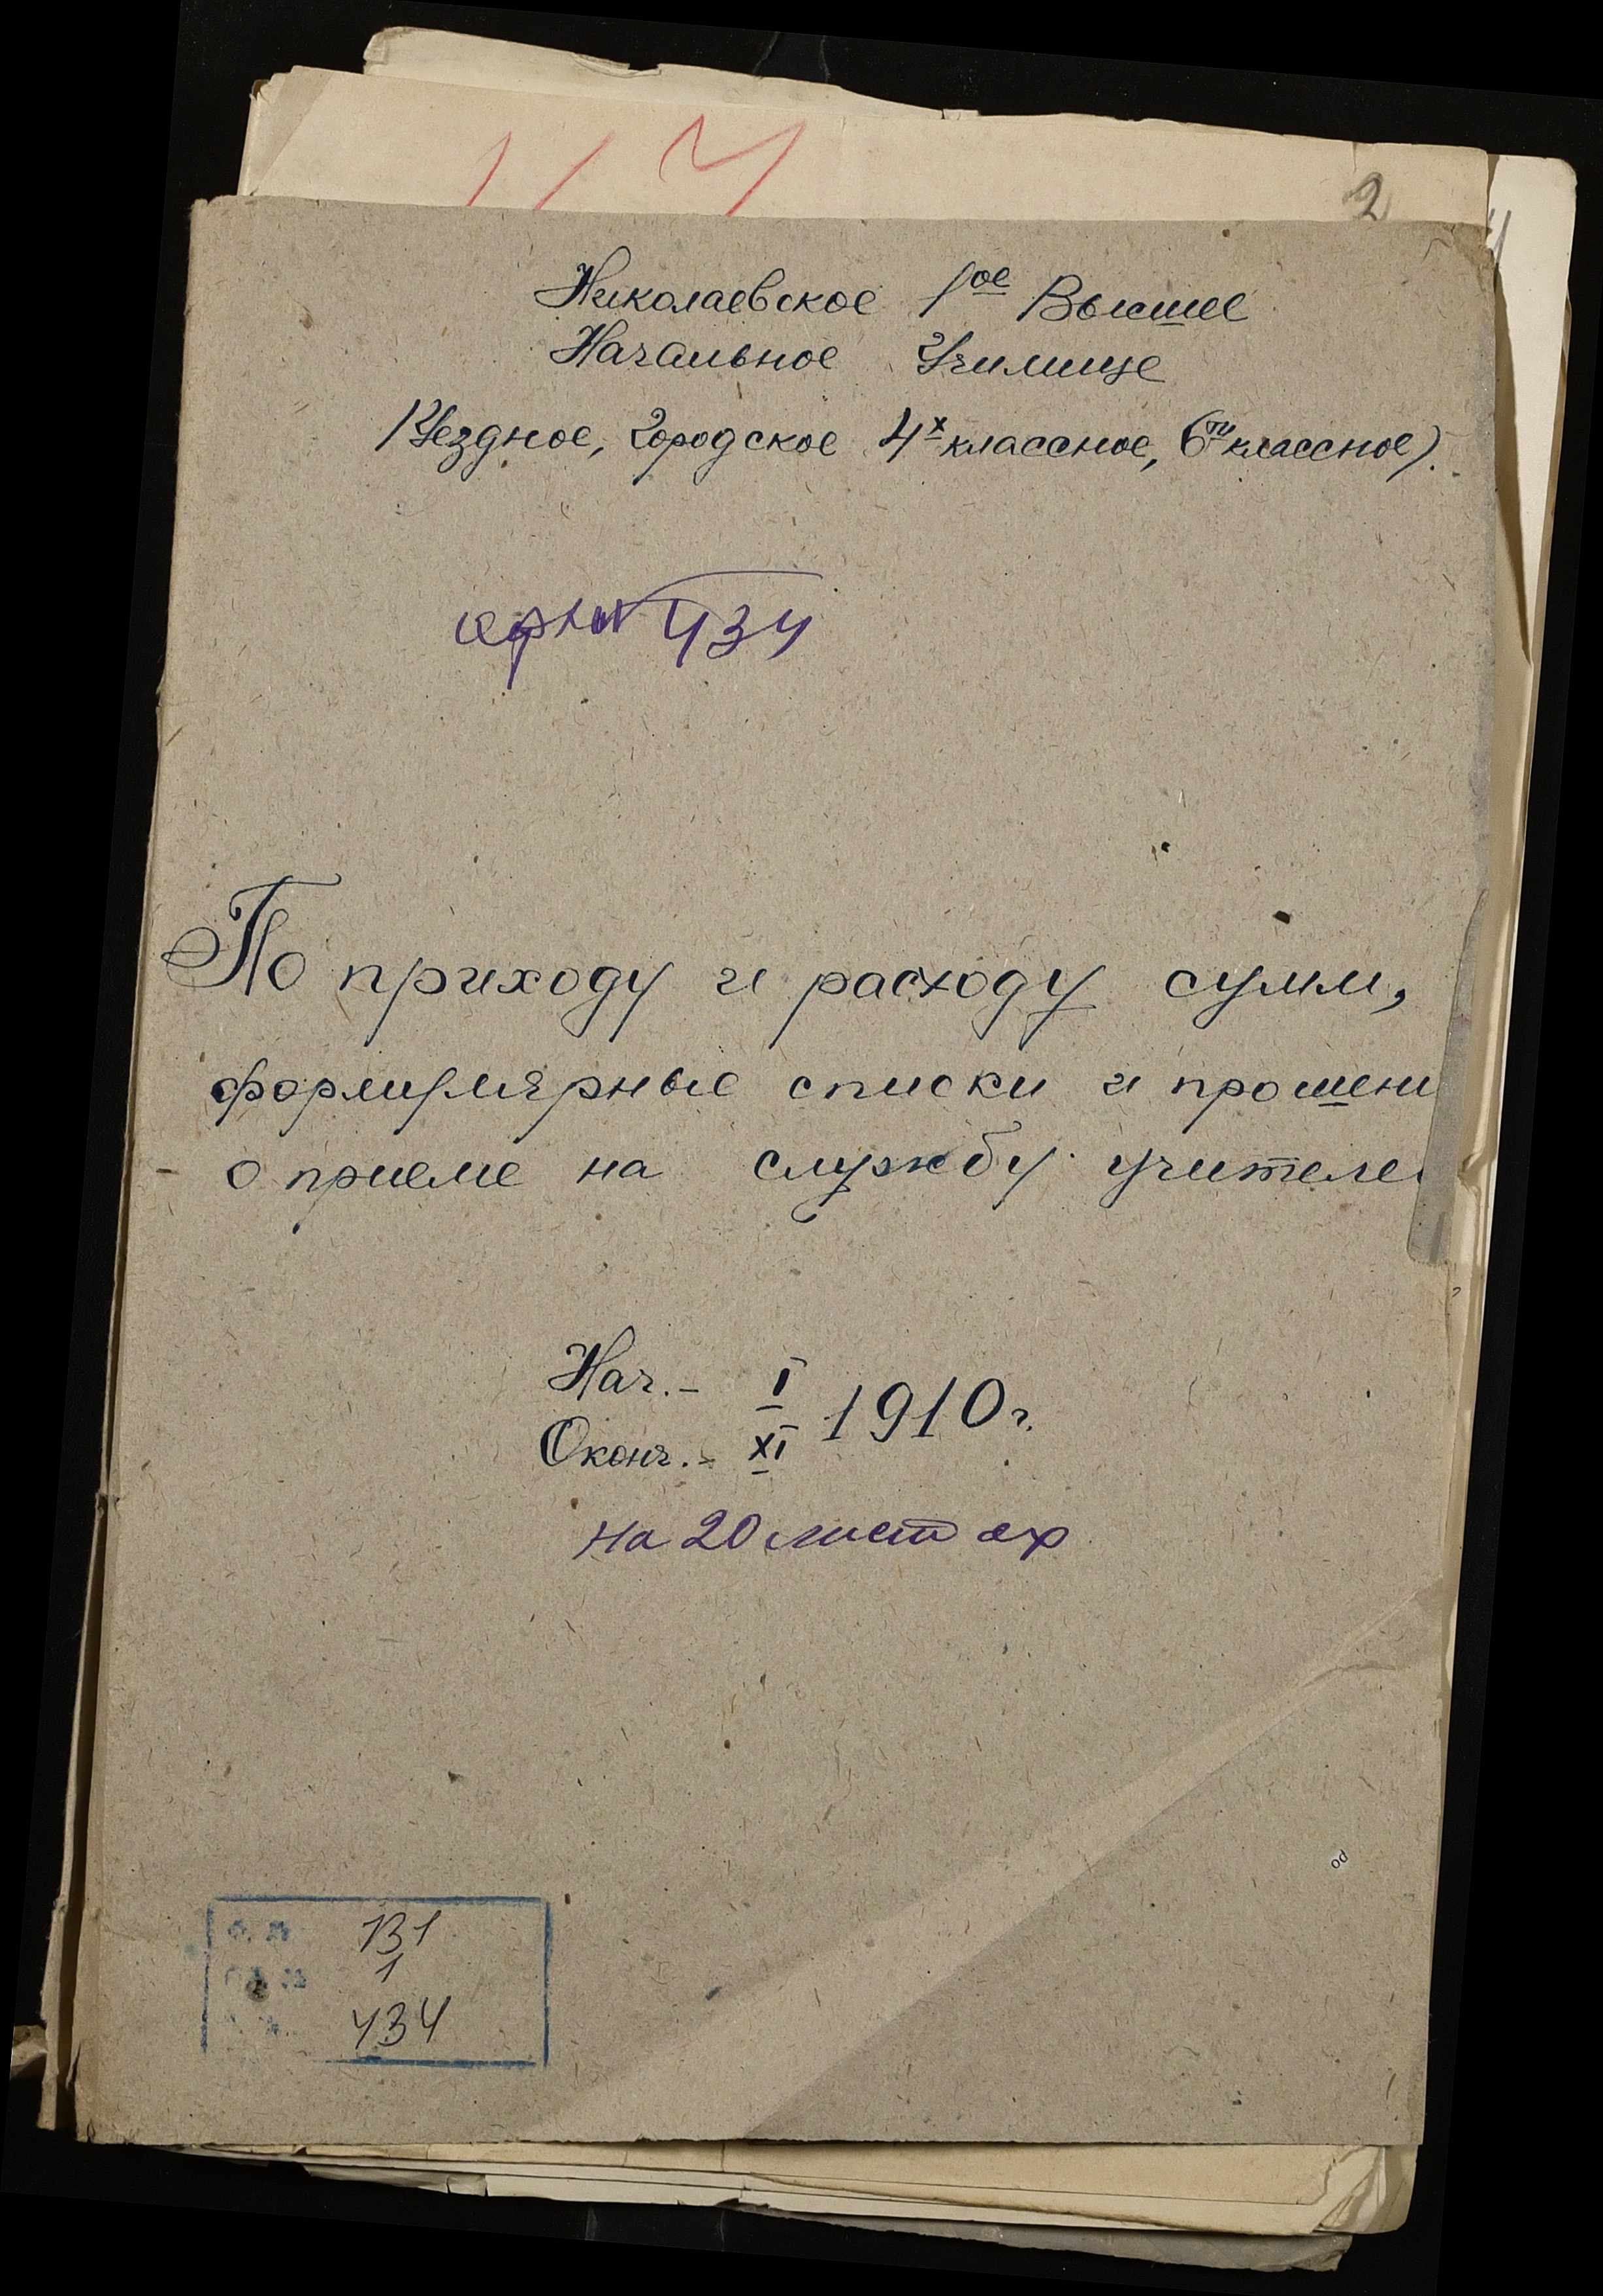 2
Николаевское 1ое Высшее
Начальное Училище
(Уездное, городское 4х классное, 6ти классное).
434
По приходу и расходу сумм,
формулярные списки и прошени
о приеме на службу учителе
Нач. - I
1910 г.
Оконч. - XI
на 20 листах
131
1
434